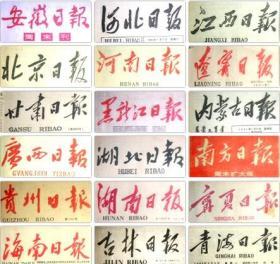 安徽日報
周末刊
河北日報
HEBEI RIBAO
江西日報
JIANGXI RIBAO
北京日报
河南日報
HENAN RIBAO
遼寧日報
LIAONING RIBAO
甘肃日報
GANSU RIBAO
黑龍江日報
内蒙古日報
廣西日報
GVANGJSIH YIZBAO
湖北日報
HUBEI RIBAO
南方日報
周末扩大版
貴州日報
GUIZHOU RIBAO
湖南日報
HUNAN RIBAO
寧夏日報
NINGXIA RIBAO
海南日报
吉林日報
JILIN RIBAO
青海日報
QINGHAI RIBAO